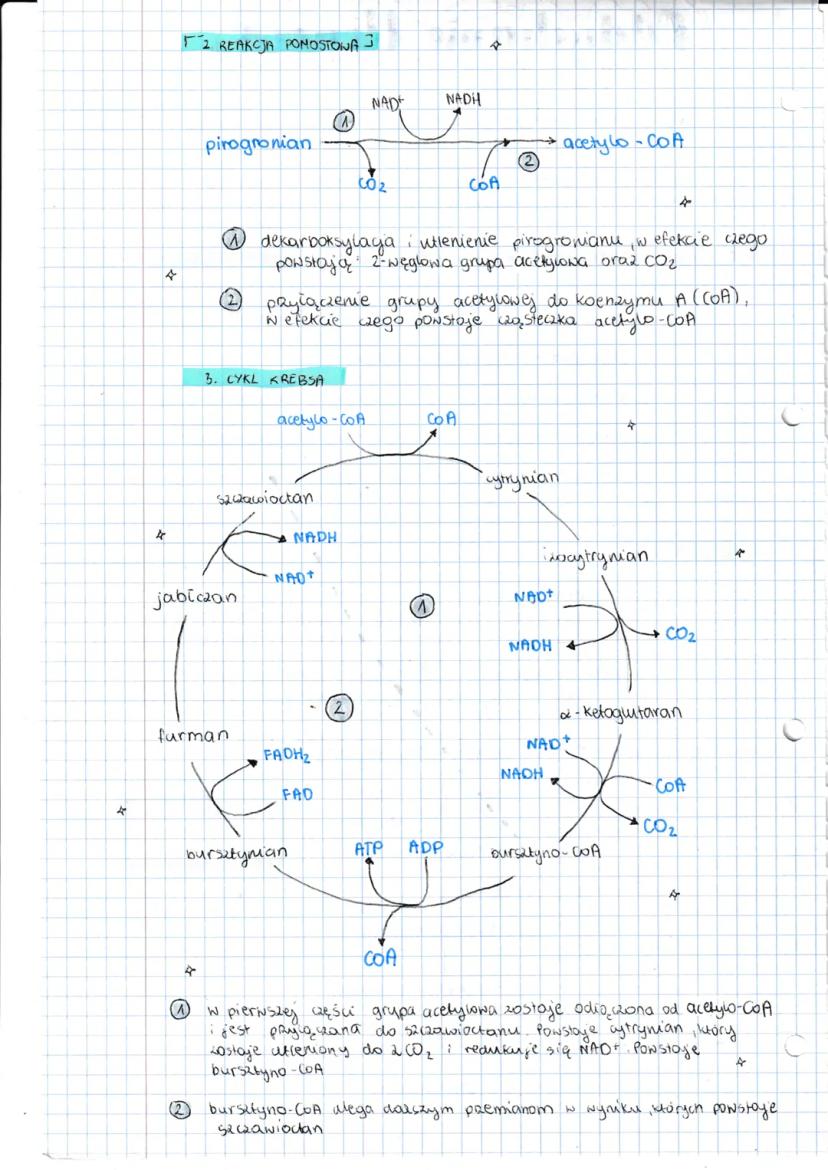 2 REAKCJA POMOSTOWA
NAD+ NADH
1
pirogronian acetylo-CoA
2
CO2 CoA
1 dekarboksylacja i utlenienie pirogronianu, w efekcie czego
powstają: 2-węglowa grupa acetylowa oraz CO2
2 przyłączenie grupy acetylowej do koenzymu A (CoA),
w efekcie czego powstaje cząsteczka acetylo-CoA
3. CYKL KREBSA
acetylo-CoA CoA
cytrynian
szczawioctan
NADH
izocytrynian
NAD+
jabłczan
1
NAD+
CO2
NADH
2
α-ketoglutaran
furman
NAD+
FADH2
NADH
CoA
FAD
CO2
bursztynian ATP ADP bursztyno-CoA
CoA
1 w pierwszej części grupa acetylowa zostaje odłączona od acetylo-CoA
i jest przyłączana do szczawioctanu. Powstaje cytrynian, który
zostaje utleniony do 2 CO2 i redukuje się NAD+. Powstaje
bursztyno-CoA
2 bursztyno-CoA ulega dalszym przemianom w wyniku, których powstaje
szczawioctan